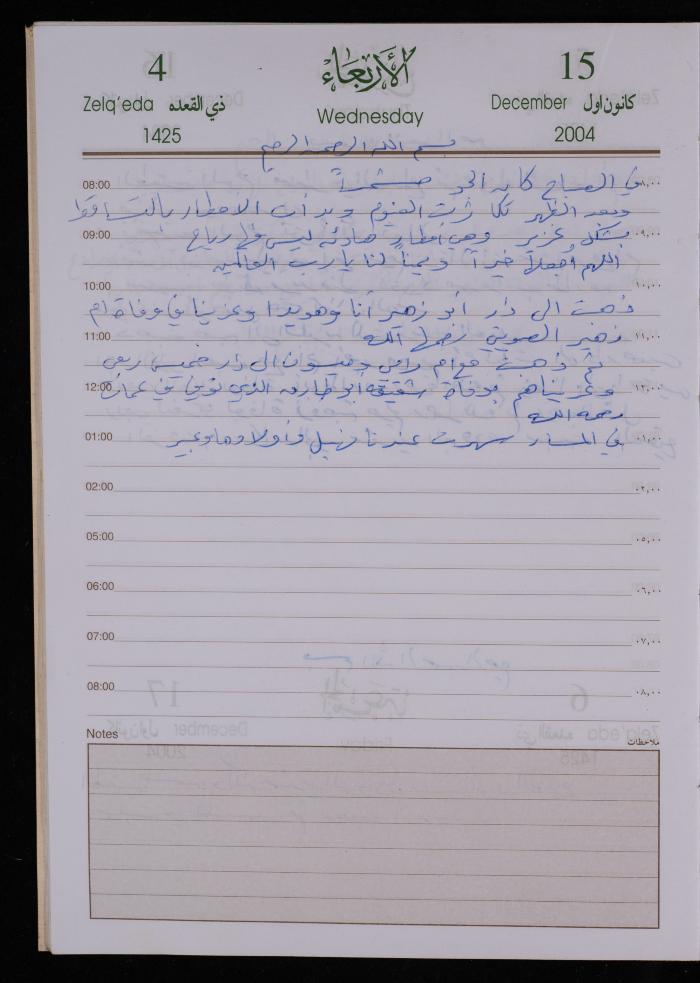 4 الأربعاء 15
Zelq'eda ذي القعده Wednesday December كانون اول
1425 2004
بسم الله الرحمن الرحيم
08:00 في الصباح كان الجو مشمساً ٠٨,٠٠
وبعد الظهر تكاثرت الغيوم وبدأت الامطار بالتساقط
09:00 بشكل غزير وهي أمطار هادئة ليس فيها رياح ٠٩,٠٠
اللهم اجعلها خيراً ويمناً لنا يا رب العالمين
10:00 ١٠,٠٠
ذهبت الى دار أبو زهير أنا وهويدا وعزينا في وفاة ام
11:00 زهير الصويتي رحمها الله ١١,٠٠
ثم ذهبت مع ام رامي وميسون الى دار خميس ربعي
12:00 وعزيناهم بوفاة شقيقه ابو طارق الذي توفي في عمان ١٢,٠٠
رحمه الله
01:00 في المساء سهرت عندنا نهيل وأولادها وعبير ٠١,٠٠
02:00 ٠٢,٠٠
05:00 ٠٥,٠٠
06:00 ٠٦,٠٠
07:00 ٠٧,٠٠
08:00 ٠٨,٠٠
Notes ملاحظات